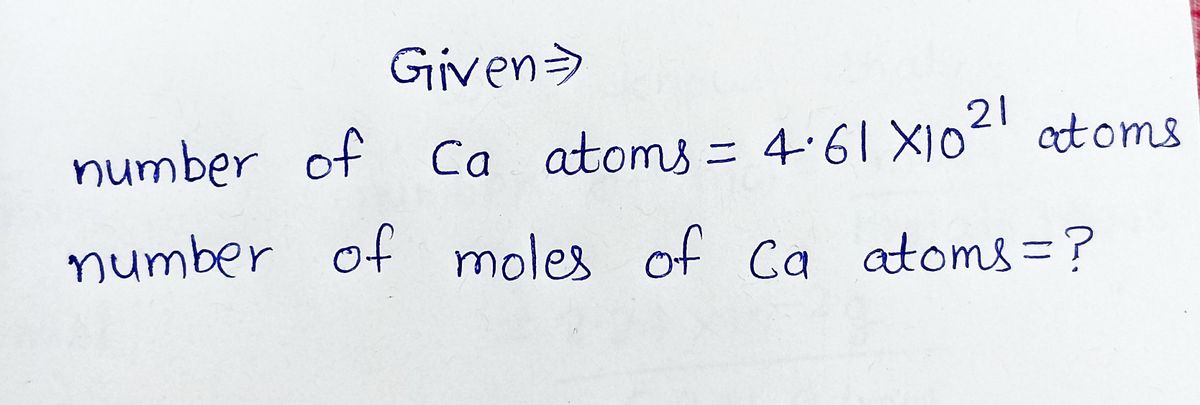 Given⇒
number of Ca atoms = 4.61 X10²¹ atoms
number of moles of Ca atoms = ?